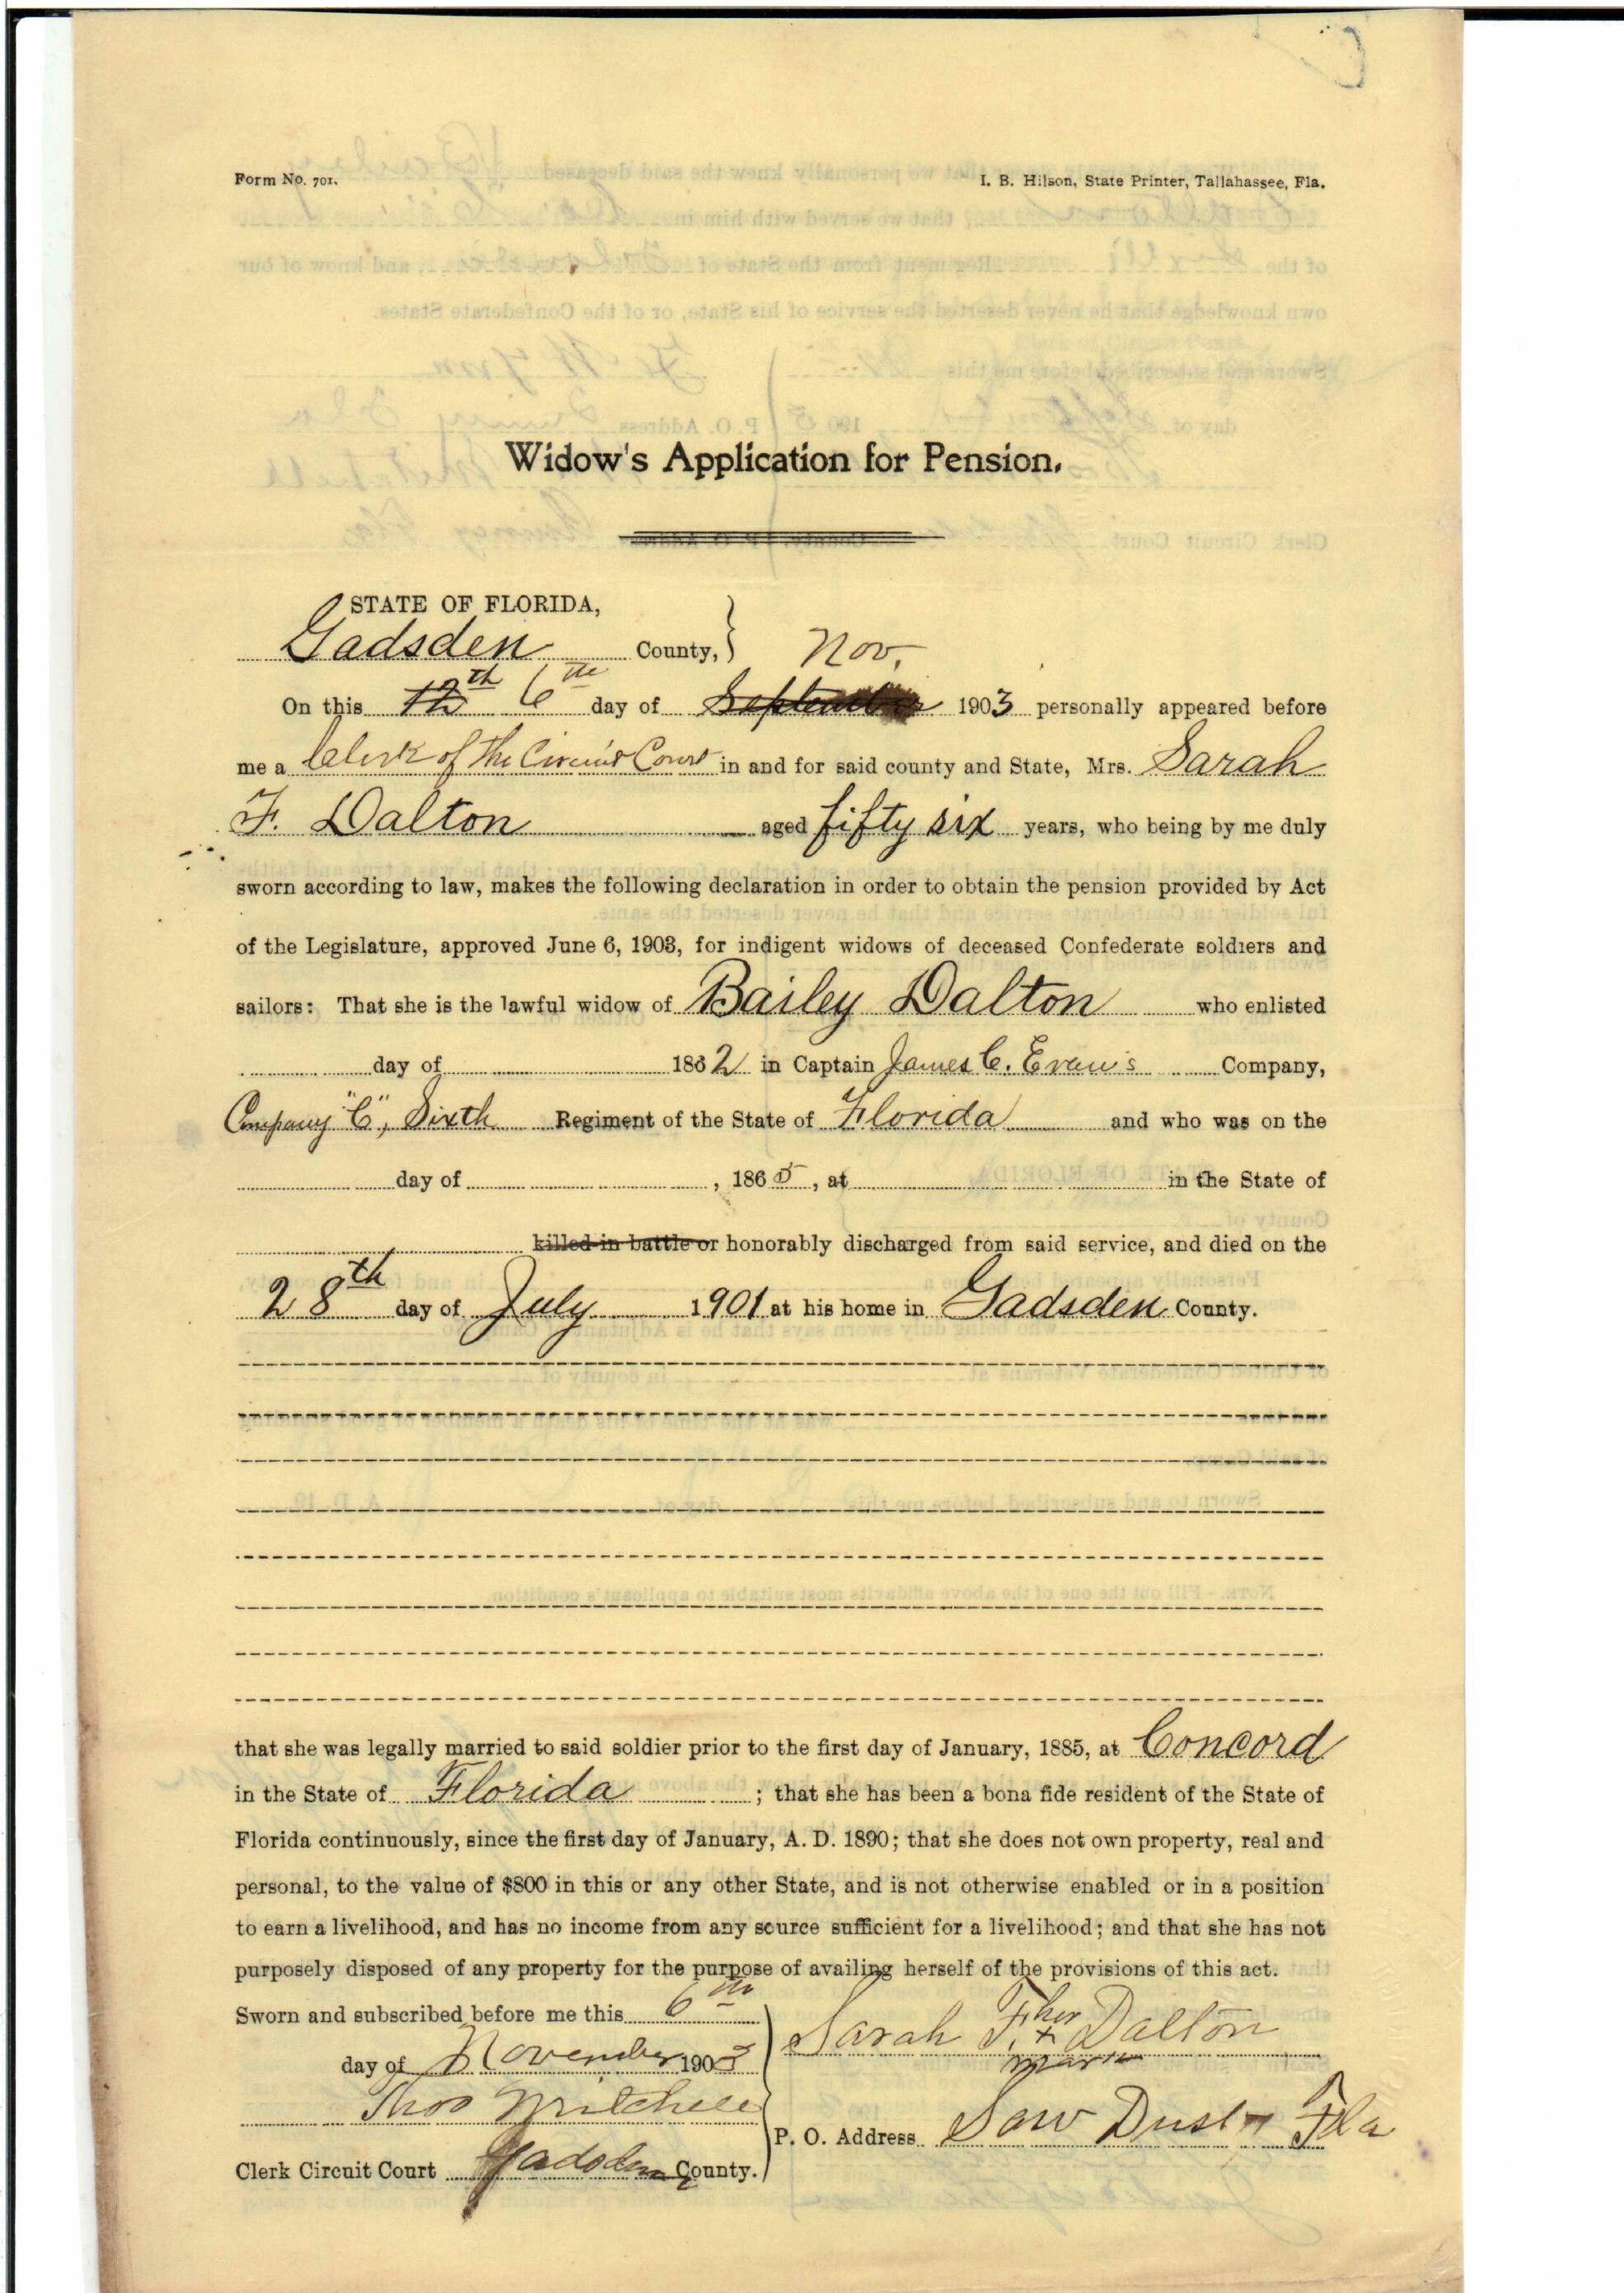 Form No. 701. I. B. Hilson, State Printer, Tallahassee, Fla.
Widow's Application for Pension.
STATE OF FLORIDA,
Gadsden County, } Nov.
On this 12th 6th day of September 1903 personally appeared before
me a Clerk of the Circuit Court in and for said county and State, Mrs. Sarah
F. Dalton aged fifty six years, who being by me duly
sworn according to law, makes the following declaration in order to obtain the pension provided by Act
of the Legislature, approved June 6, 1903, for indigent widows of deceased Confederate soldiers and
sailors: That she is the lawful widow of Bailey Dalton who enlisted
day of 1862 in Captain James C. Evans Company,
Company "C", Sixth Regiment of the State of Florida and who was on the
day of , 1865, at in the State of
killed in battle or honorably discharged from said service, and died on the
28th day of July 1901 at his home in Gadsden County.
that she was legally married to said soldier prior to the first day of January, 1885, at Concord
in the State of Florida ; that she has been a bona fide resident of the State of
Florida continuously, since the first day of January, A. D. 1890; that she does not own property, real and
personal, to the value of $800 in this or any other State, and is not otherwise enabled or in a position
to earn a livelihood, and has no income from any source sufficient for a livelihood; and that she has not
purposely disposed of any property for the purpose of availing herself of the provisions of this act.
Sworn and subscribed before me this 6th
day of November 1903
Thos Mitchell
Clerk Circuit Court Gadsden County.
Sarah F. her x mark Dalton
P. O. Address Saw Dust Fla